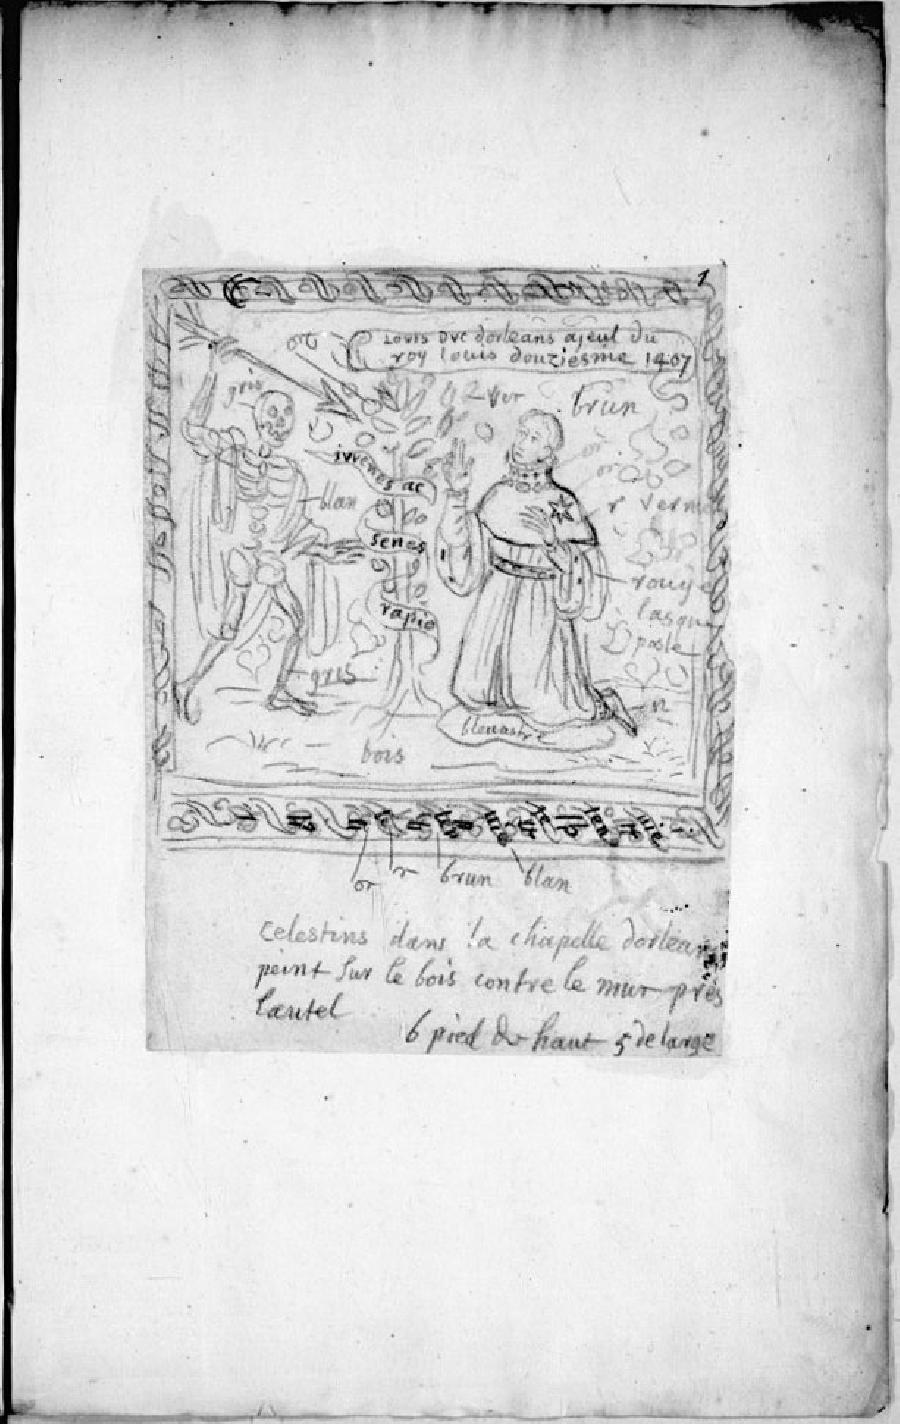 1
Louis dvc dorleans ajeul du
roy louis douziesme 1407
or
gris
ver
brun
ivvenes ac
or
or
blan
r verm
senes
rouge
lasque
pasle
rapio
gris
n
bleuastre
bois
or r brun blan
Celestins dans la chapelle dorleans
peint sur le bois contre le mur près
lautel
6 pied de haut 5 de large